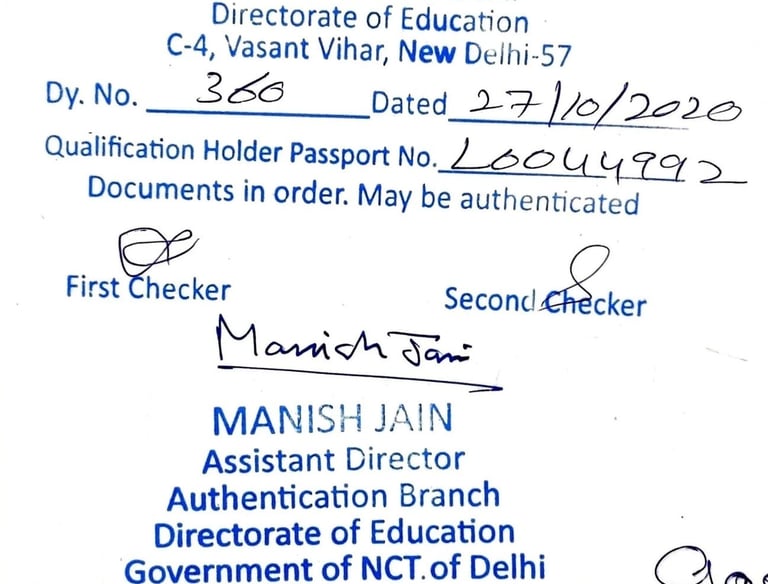 Directorate of Education
C-4, Vasant Vihar, New Delhi-57
Dy. No. 360 Dated 27/10/2020
Qualification Holder Passport No. L0044992
Documents in order. May be authenticated
First Checker
Second Checker
Manish Jain
MANISH JAIN
Assistant Director
Authentication Branch
Directorate of Education
Government of NCT.of Delhi